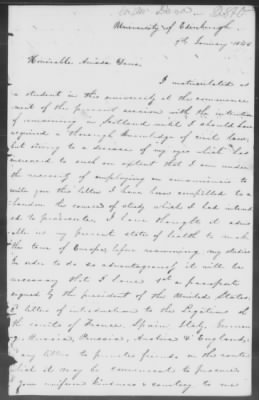 University of Edinburgh
9th January 1848
Honorable
I matriculated as
a student in this university at the commence
ment of the present session with the intention
of remaining in Scotland until I should have
acquired a thorough knowledge of civil law,
but owing to a disease of my eyes which has
increased to such an extent that I am under
the necessity of employing an amanuensis to
write you this letter I have been compelled to a
bandon the course of study which I had intend
ed to prosecute. I have thought it advis
able in my present state of health to make
the tour of Europe before resuming my studies
In order to do so advantageously it will be
necessary that I have 1st a passport
signed by the president of the United States.
2 letters of introduction to the Legations at
the courts of France, Spain, Italy, German
y, Russia, Prussia, Austria & England.
any letters to private friends on the conti
which it may be convenient to procure
your uniform kindness & courtesy to me